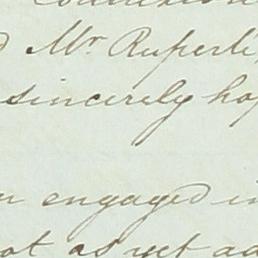 Mr Ruperti
sincerely
engaged in
as yet